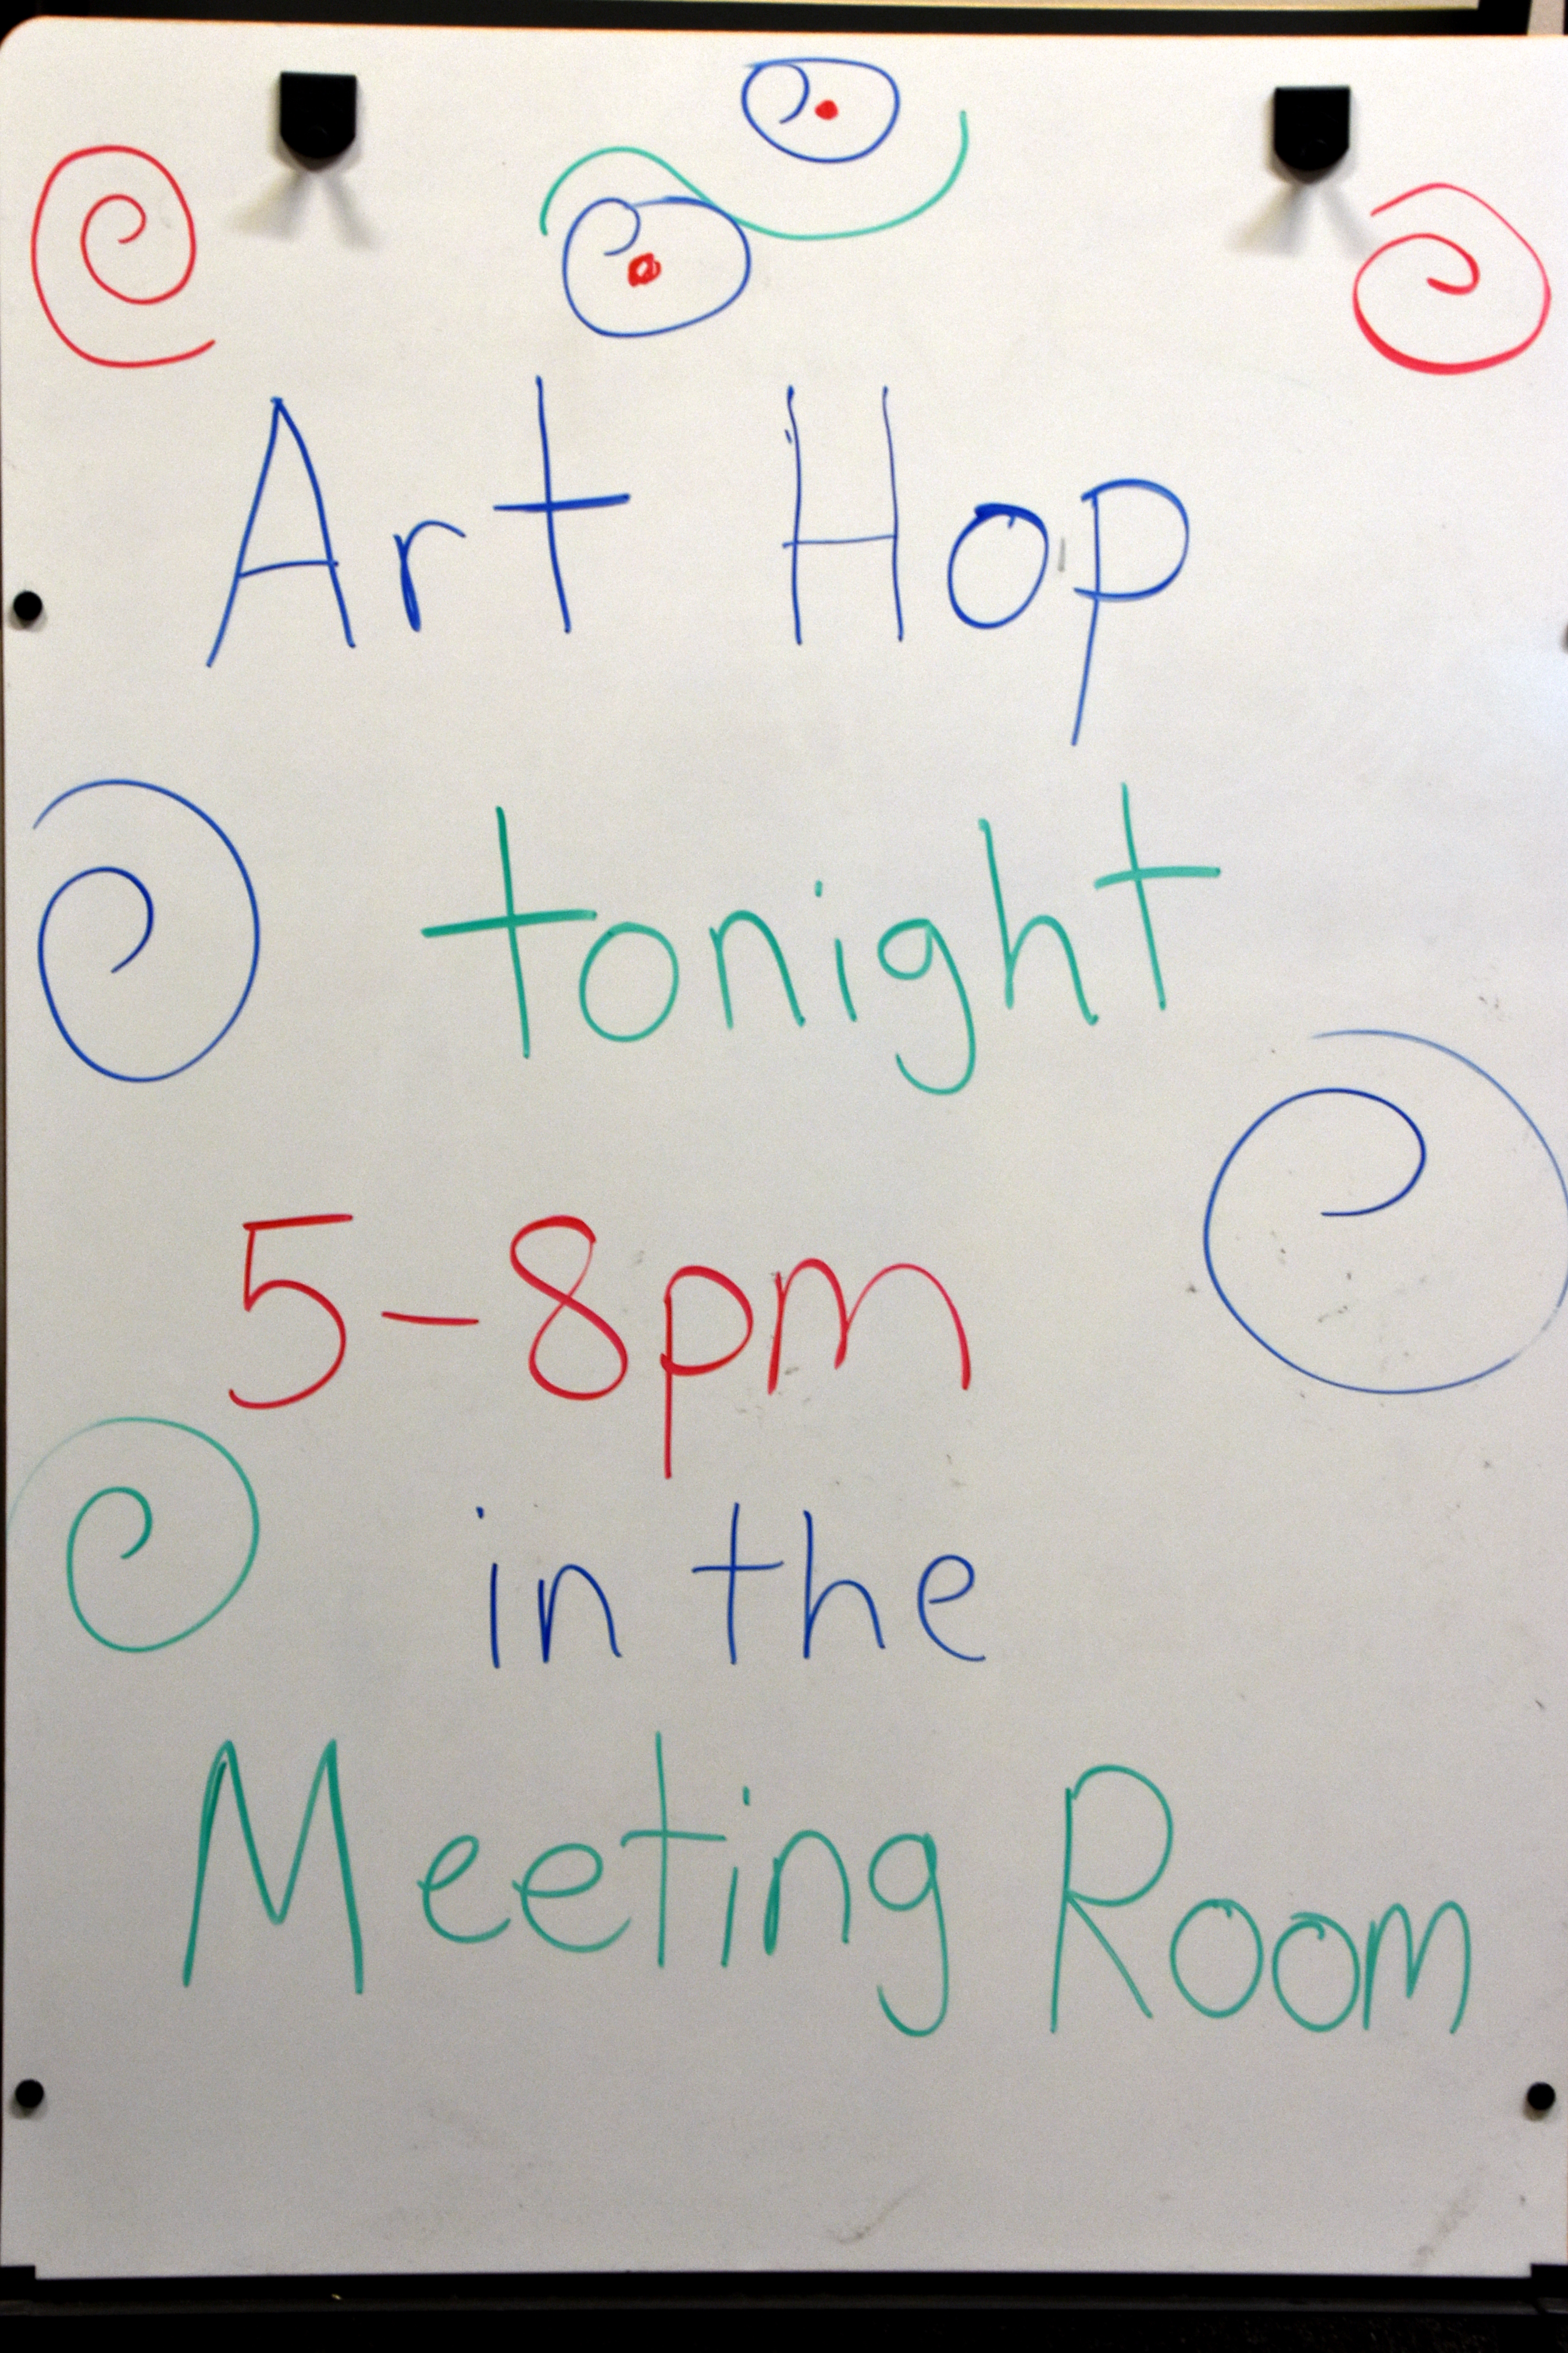 Art Hop
tonight
5-8pm
in the
Meeting Room